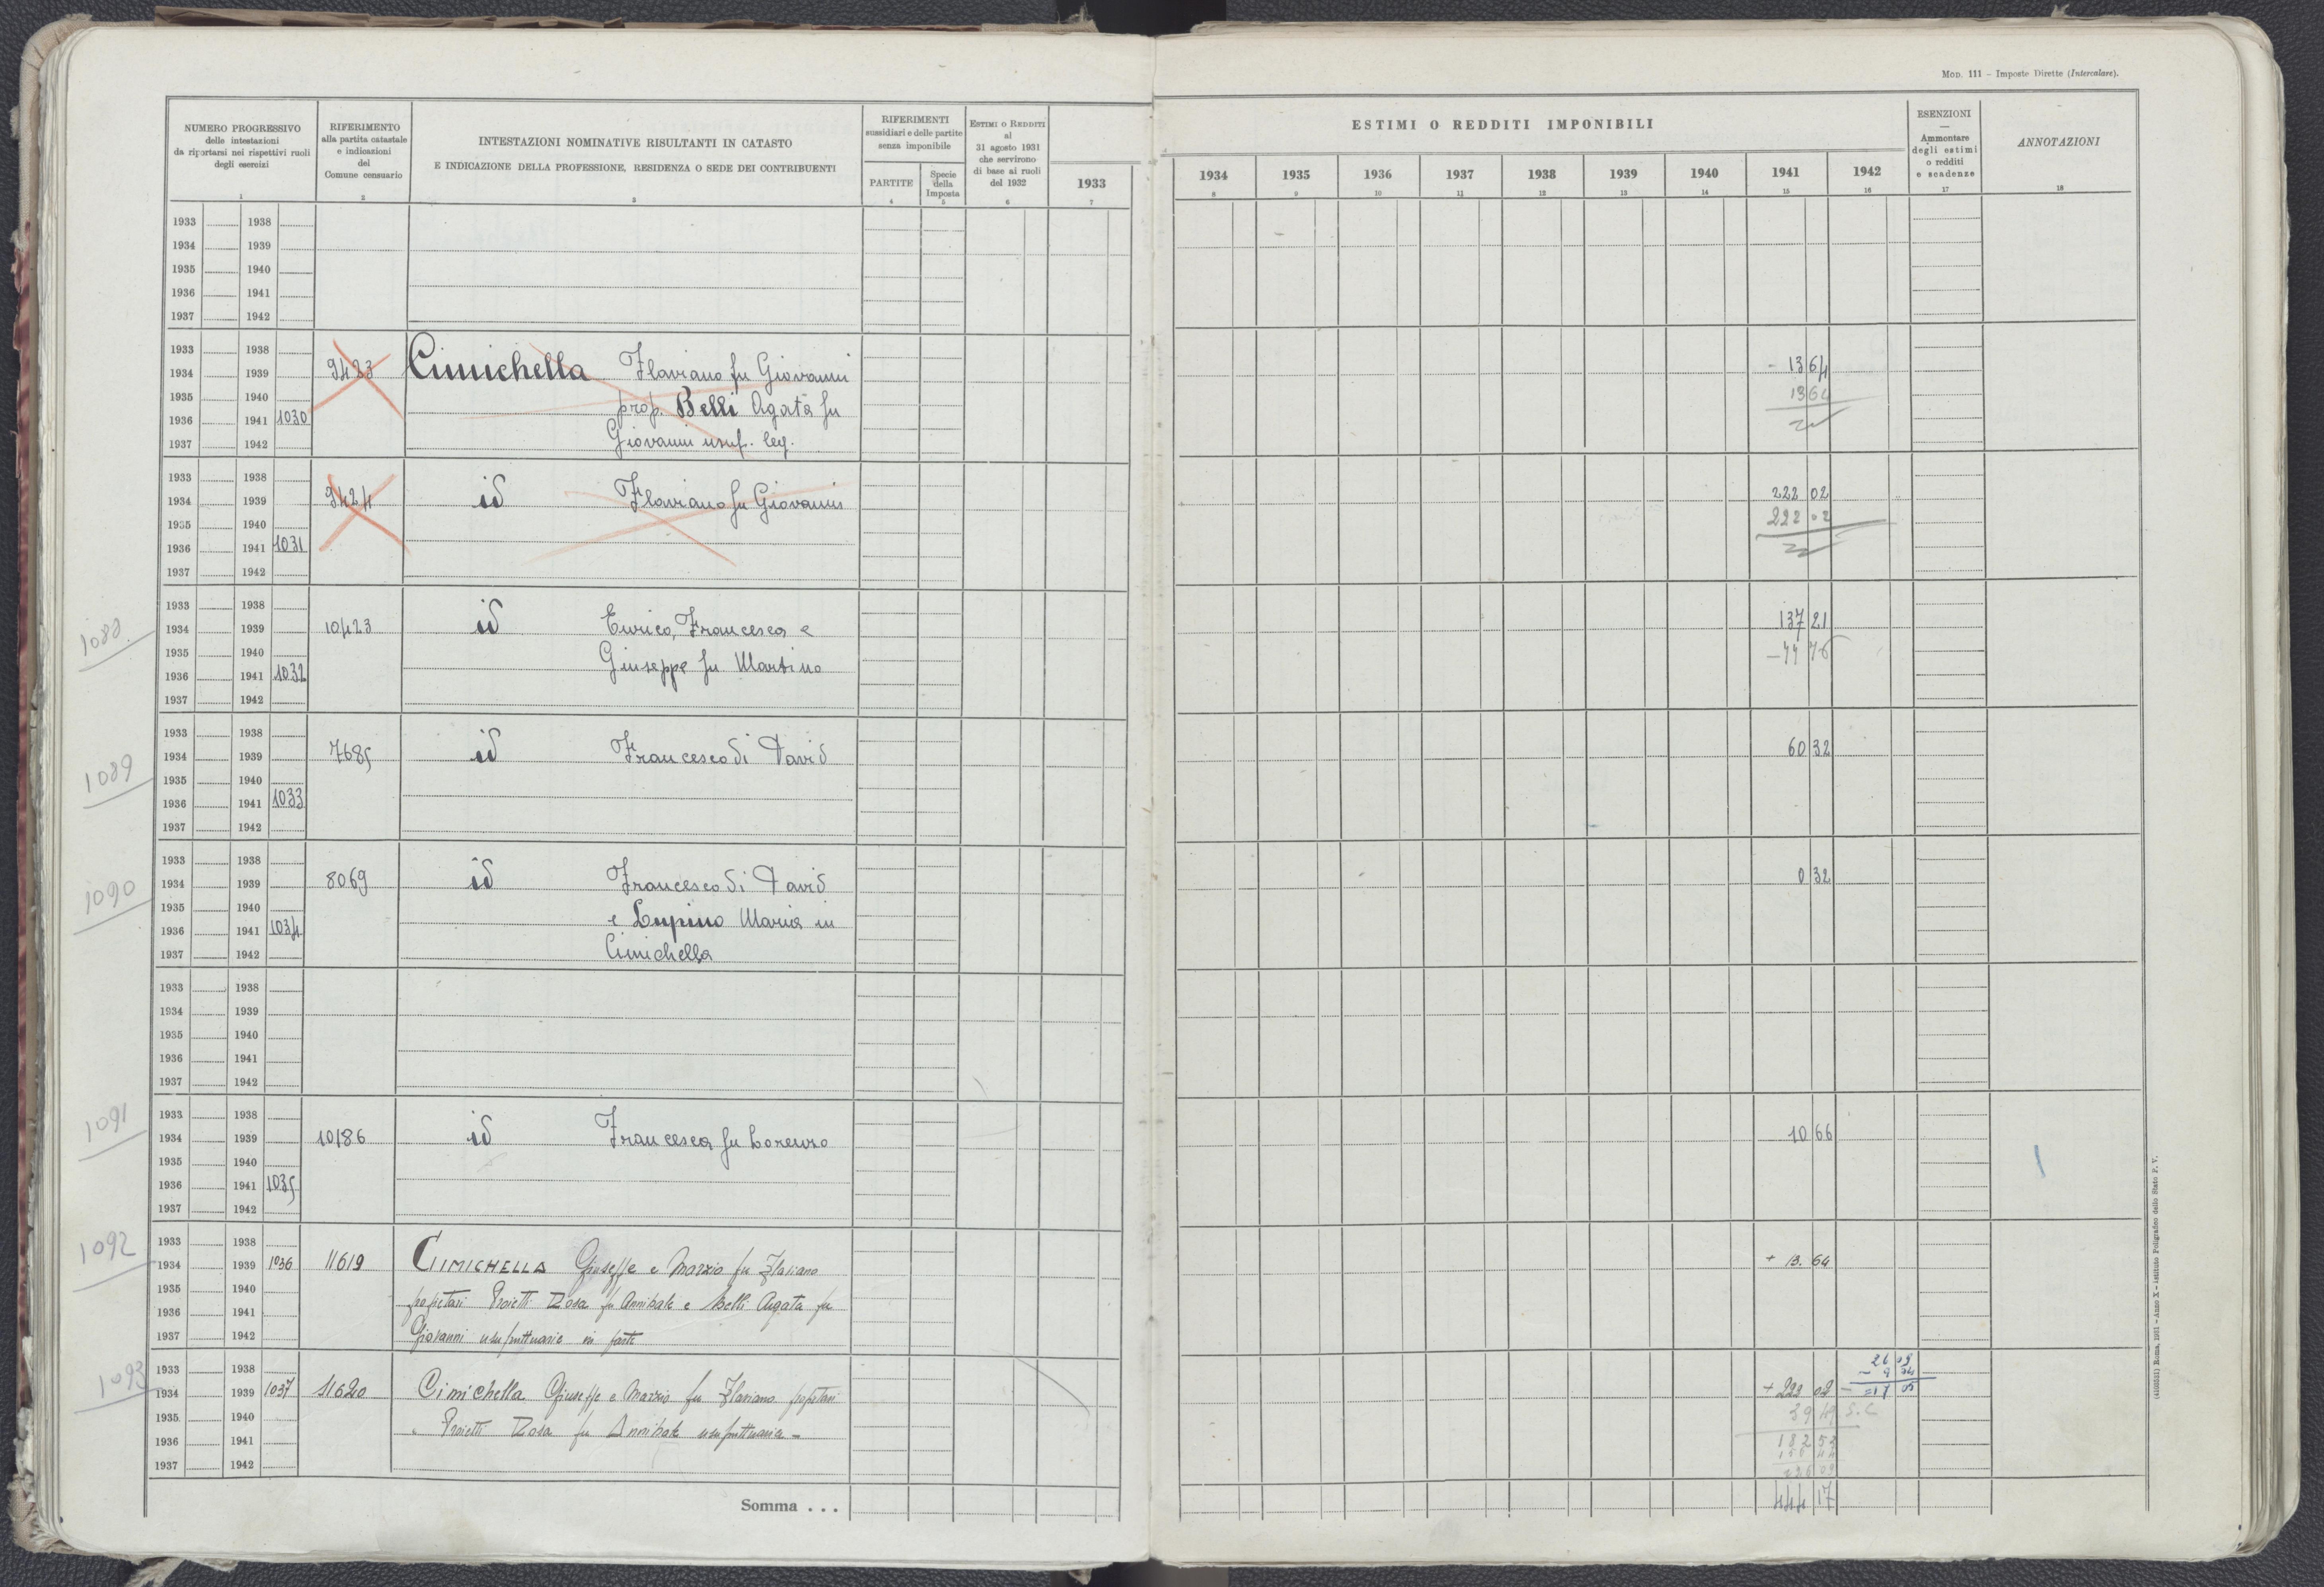 MOD. 111 – Imposte Dirette (Intercalare).
NUMERO PROGRESSIVO
delle intestazioni
da riportarsi nei rispettivi ruoli
degli esercizi
1
RIFERIMENTO
alla partita catastale
e indicazioni
del
Comune censuario
2
INTESTAZIONI NOMINATIVE RISULTANTI IN CATASTO
E INDICAZIONE DELLA PROFESSIONE, RESIDENZA O SEDE DEI CONTRIBUENTI
3
RIFERIMENTI
sussidiari e delle partite
senza imponibile
PARTITE
4
Specie
della
Imposta
5
ESTIMI O REDDITI
al
31 agosto 1931
che servirono
di base ai ruoli
del 1932
6
1933
7
ESTIMI O REDDITI IMPONIBILI
1934 1935 1936 1937 1938 1939 1940 1941 1942
8 9 10 11 12 13 14 15 16
ESENZIONI
—
Ammontare
degli estimi
o redditi
e scadenze
17
ANNOTAZIONI
18
1933 1938
1934 1939
1935 1940
1936 1941
1937 1942
1933 1938
1934 1939 9423 Cimichella Flaviano fu Giovanni - 13 64
1935 1940 prop. Belli Agata fu 13 64
1936 1941 1030
1937 1942 Giovanni usuf. leg.
1933 1938
1934 1939 9424 id Flaviano fu Giovanni 222 02
1935 1940 222 02
1936 1941 1031
1937 1942
1933 1938
1088 1934 1939 10423 id Enrico, Francesca e 137 21
1935 1940 Giuseppe fu Martino
1936 1941 1032
1937 1942
1933 1938
1934 1939 7685 id Francesco di David 60 32
1089
1935 1940
1936 1941 1033
1937 1942
1933 1938
1090 1934 1939 8069 id Francesco di David 0 32
1935 1940 e Lupino Maria in
1936 1941 1034
1937 1942 Cimichella
1933 1938
1934 1939
1935 1940
1936 1941
1937 1942
1091 1933 1938
1934 1939 10186 id Francesca fu Lorenzo 10 66
1935 1940
1936 1941 1035
1937 1942
1092 1933 1938
1934 1939 1036 11619 CIMICHELLA Giuseppe e Marzio fu Flaviano + 13. 64
1935 1940 propietari Proietti Rosa fu Annibale e Belli Agata fu
1936 1941
1937 1942 Giovanni usufruttuarie in parte
1093 1933 1938 26 09
1934 1939 1037 11620 Cimichella Giuseppe e Marzio fu Flaviano propietari
1935 1940 39 49 S.C
1936 1941 " Proietti Rosa fu Annibale usufruttuaria - 182 53
1937 1942
Somma . . . 444 17
(4103531) Roma, 1931 – Anno X – Istituto Poligrafico dello Stato P. V.